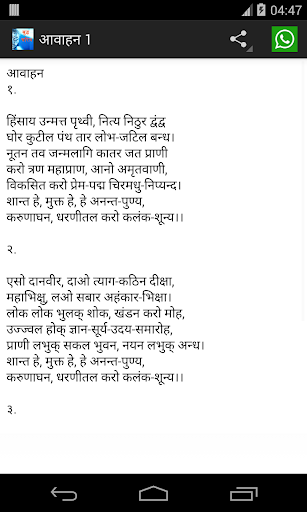 04:47
आवाहन 1
आवाहन
१.
हिंसाय उन्मत्त पृथ्वी, नित्य निठुर द्वंद्व
घोर कुटील पंथ तार लोभ-जटिल बन्ध।
नूतन तव जन्मलागि कातर जत प्राणी
करो त्रण महाप्राण, आनो अमृतवाणी,
विकसित करो प्रेम-पद्म चिरमधु-निष्यन्द।
शान्त हे, मुक्त हे, हे अनन्त-पुण्य,
करुणाघन, धरणीतल करो कलंक-शून्य।।
२.
एसो दानवीर, दाओ त्याग-कठिन दीक्षा,
महाभिक्षु, लओ सबार अहंकार-भिक्षा।
लोक लोक भुलक् शोक, खंडन करो मोह,
उज्ज्वल होक् ज्ञान-सूर्य-उदय-समारोह,
प्राणी लभुक् सकल भुवन, नयन लभुक् अन्ध।
शान्त हे, मुक्त हे, हे अनन्त-पुण्य,
करुणाघन, धरणीतल करो कलंक-शून्य।।
३.